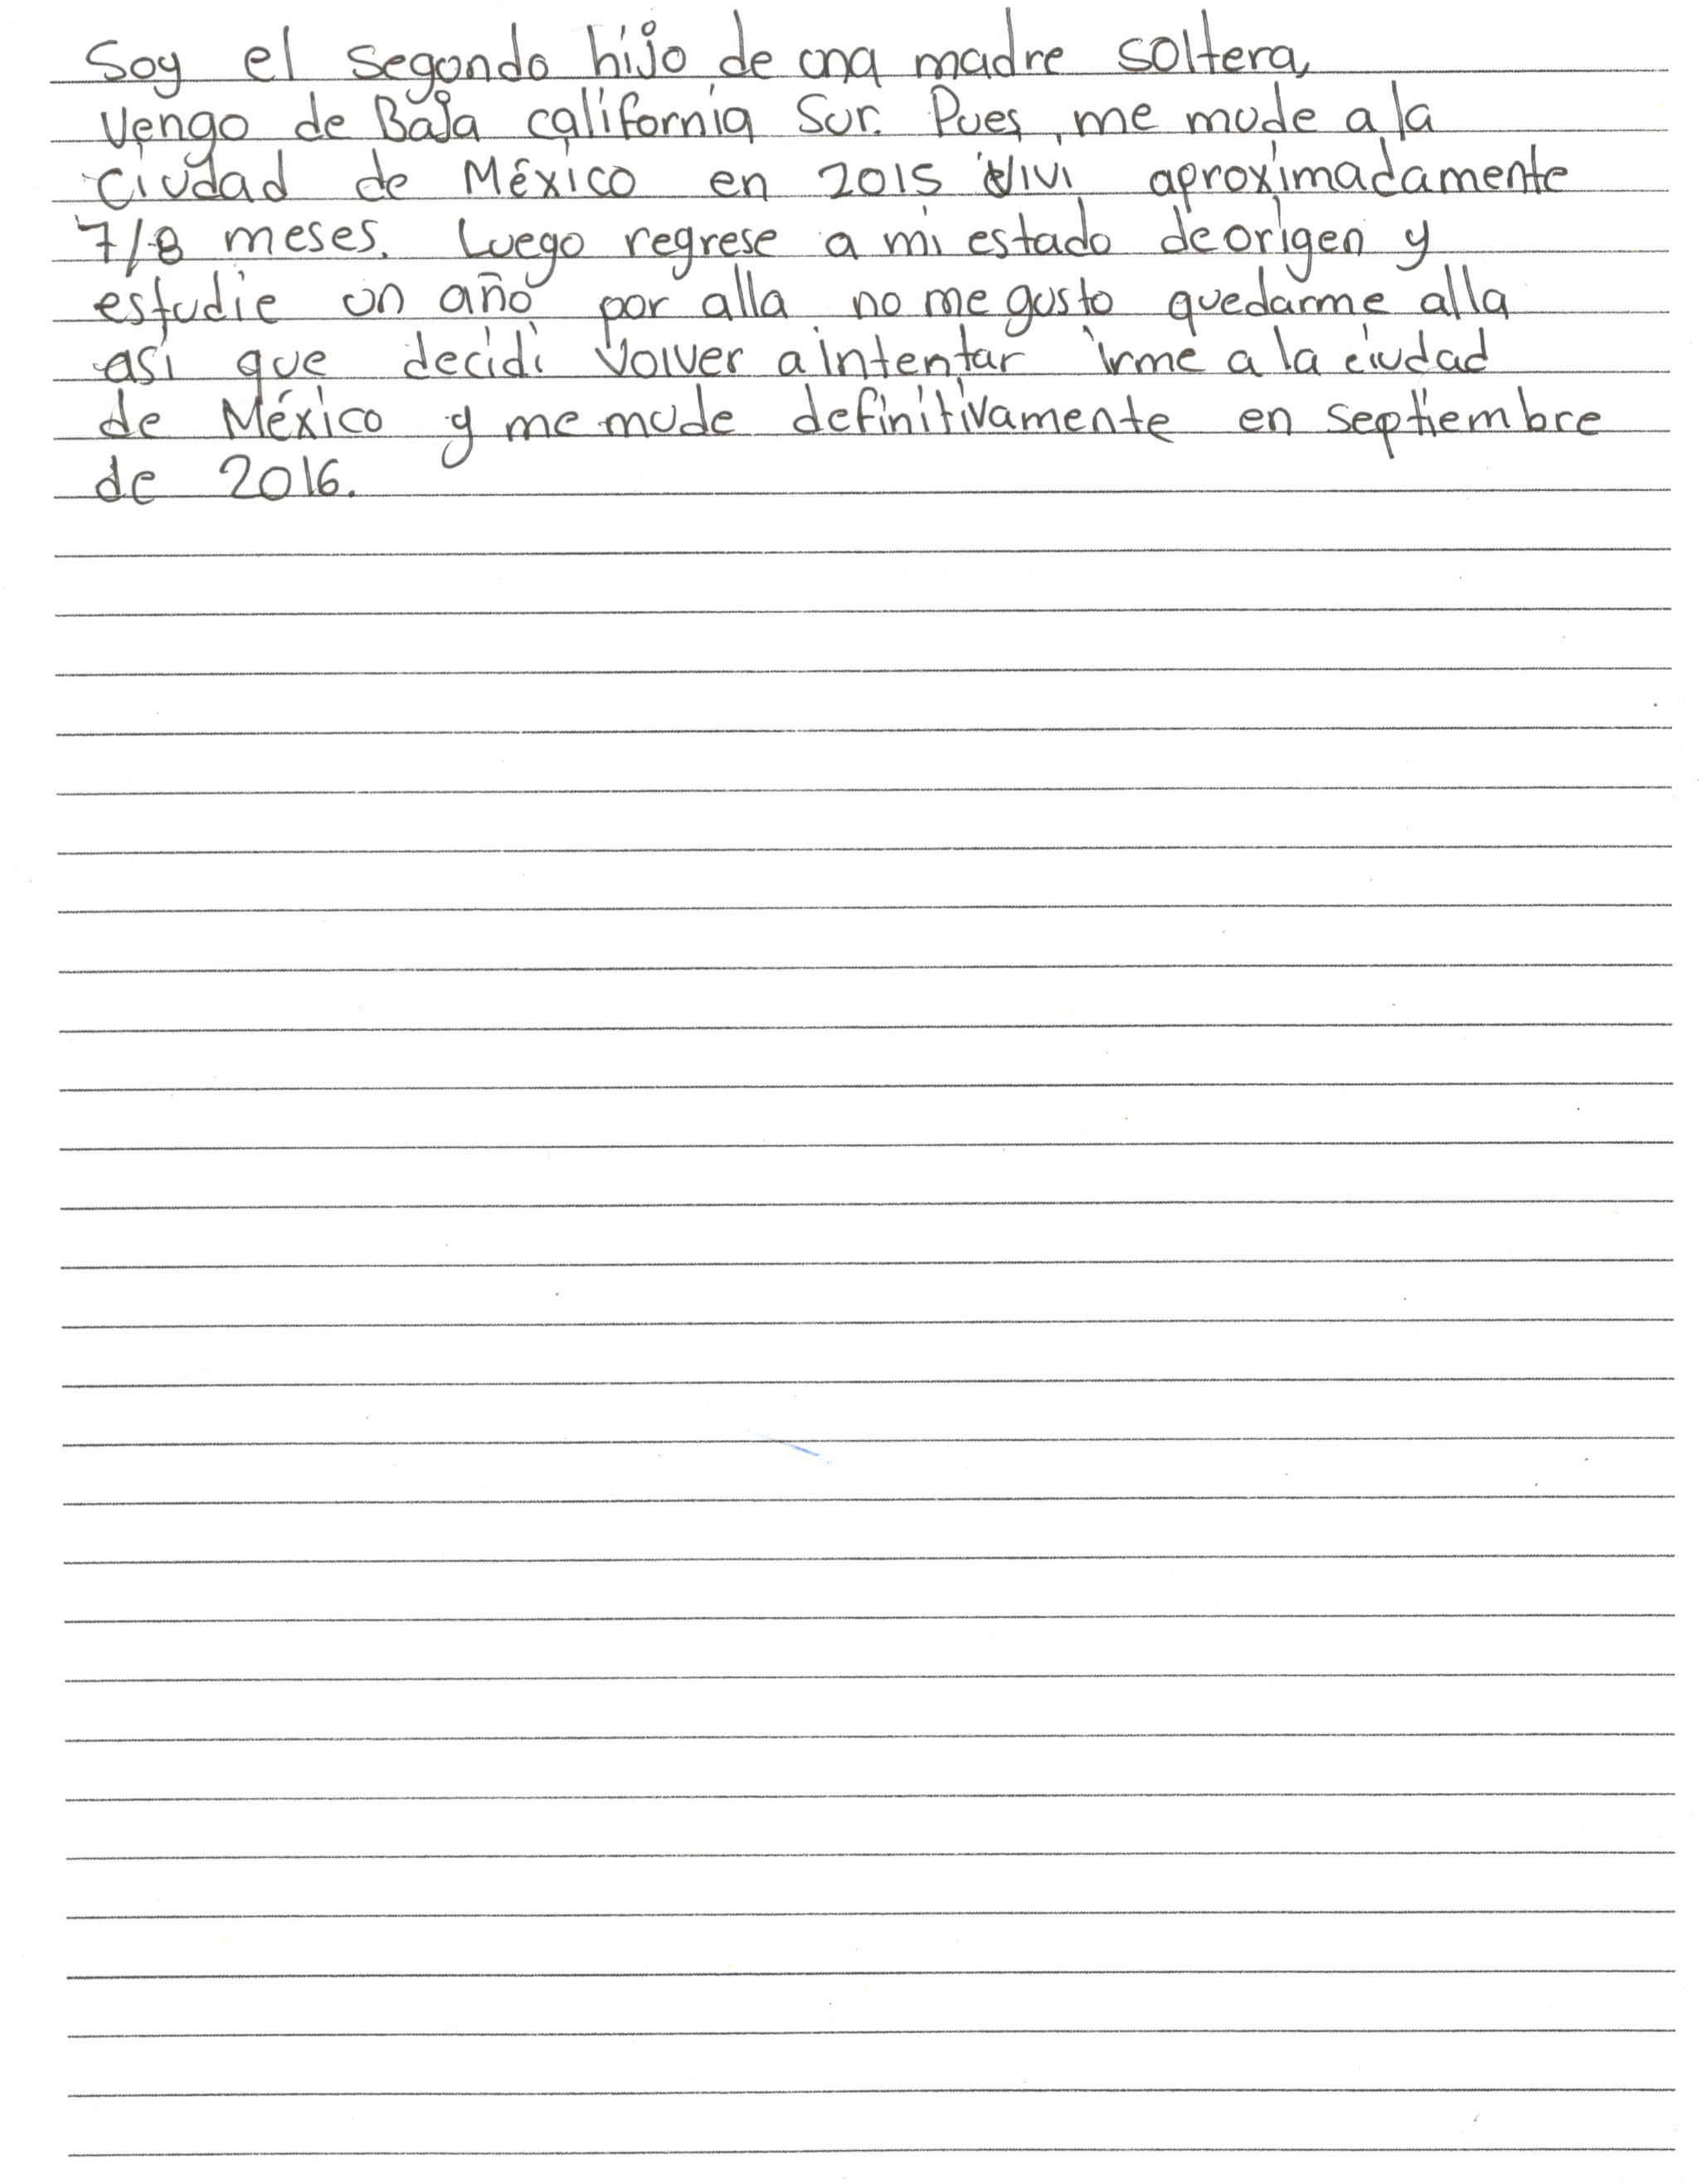 Soy el segundo hijo de una madre soltera,
Vengo de Baja california Sur. Pues, me mude a la
Ciudad de México en 2015 Vivi aproximadamente
7/8 meses. Luego regrese a mi estado de origen y
estudie un año por alla no me gusto quedarme alla
asi que decidi volver a intentar irme a la ciudad
de México y me mude definitivamente en septiembre
de 2016.